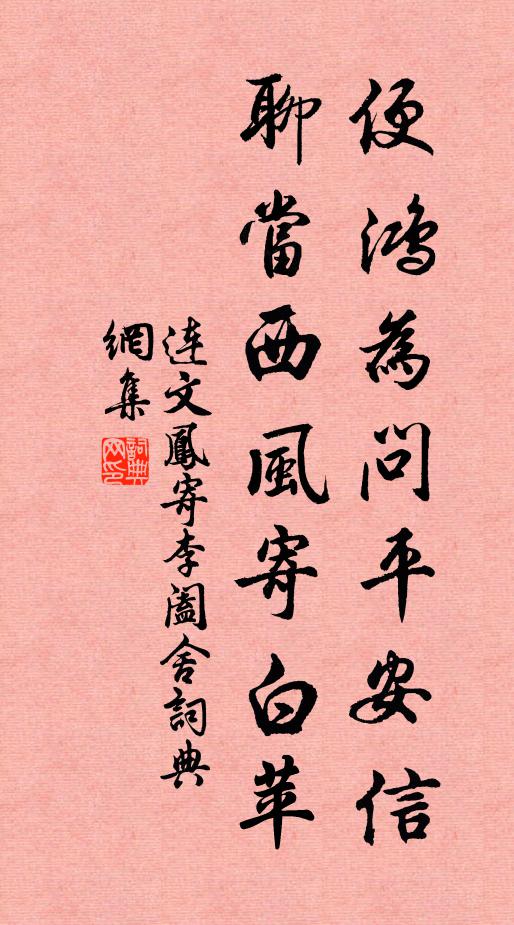 便鴻為問平安信
聊當西風寄白苹
連文鳳寄李闔舍詞典
網集
詞典
网印